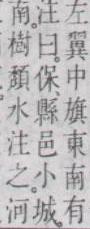 左翼中旗東南有
注曰保縣邑小城
南樹頹水注之河